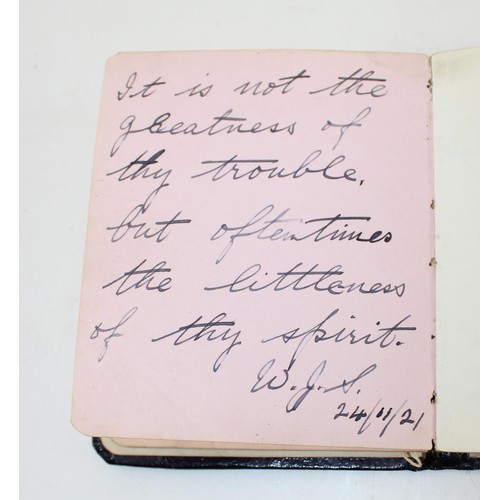 It is not the
greatness of
thy trouble,
but oftentimes
the littleness
of thy spirit.
W.J.S.
24/11/21